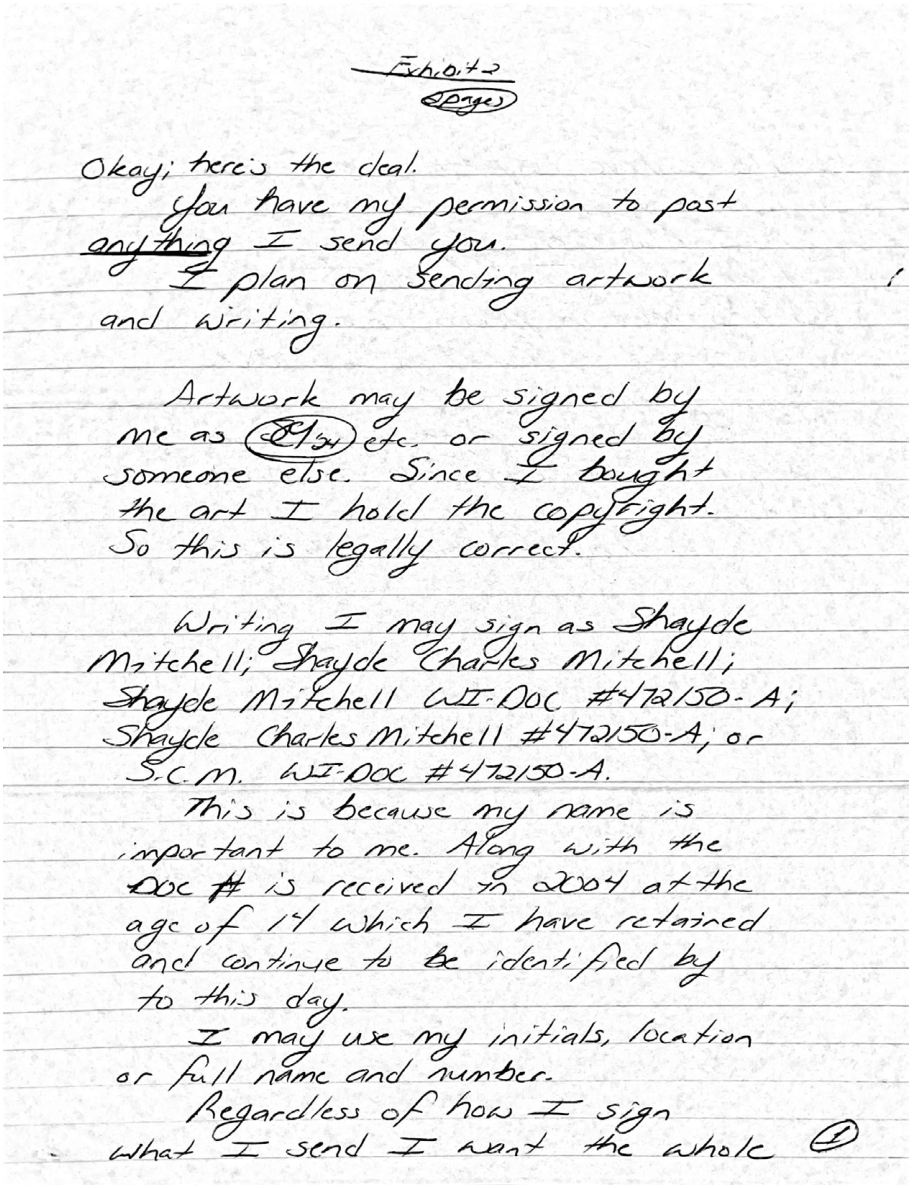 Exhibit 2
2 pages
Okay; here's the deal.
You have my permission to post
anything I send you.
I plan on sending artwork
and writing.
Artwork may be signed by
me as etc. or signed by
someone else. Since I bought
the art I hold the copyright.
So this is legally correct.
Writing I may sign as Shayde
Mitchell; Shayde Charles Mitchell;
Shayde Mitchell WI-DOC #472150-A;
Shayde Charles Mitchell #472150-A; or
S.C.M. WI-DOC #472150-A.
This is because my name is
important to me. Along with the
DOC # is received in 2004 at the
age of 14 which I have retained
and continue to be identified by
to this day.
I may use my initials, location
or full name and number.
Regardless of how I sign
what I send I want the whole
1